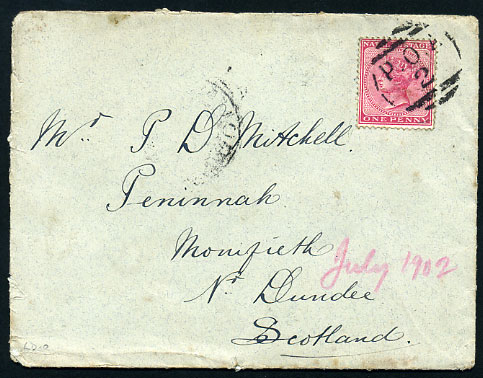 NATAL POSTAGE
P.O.
ONE PENNY
Mr P D Mitchell.
Peninnah
Monifieth
Nr Dundee
Scotland.
July 1902